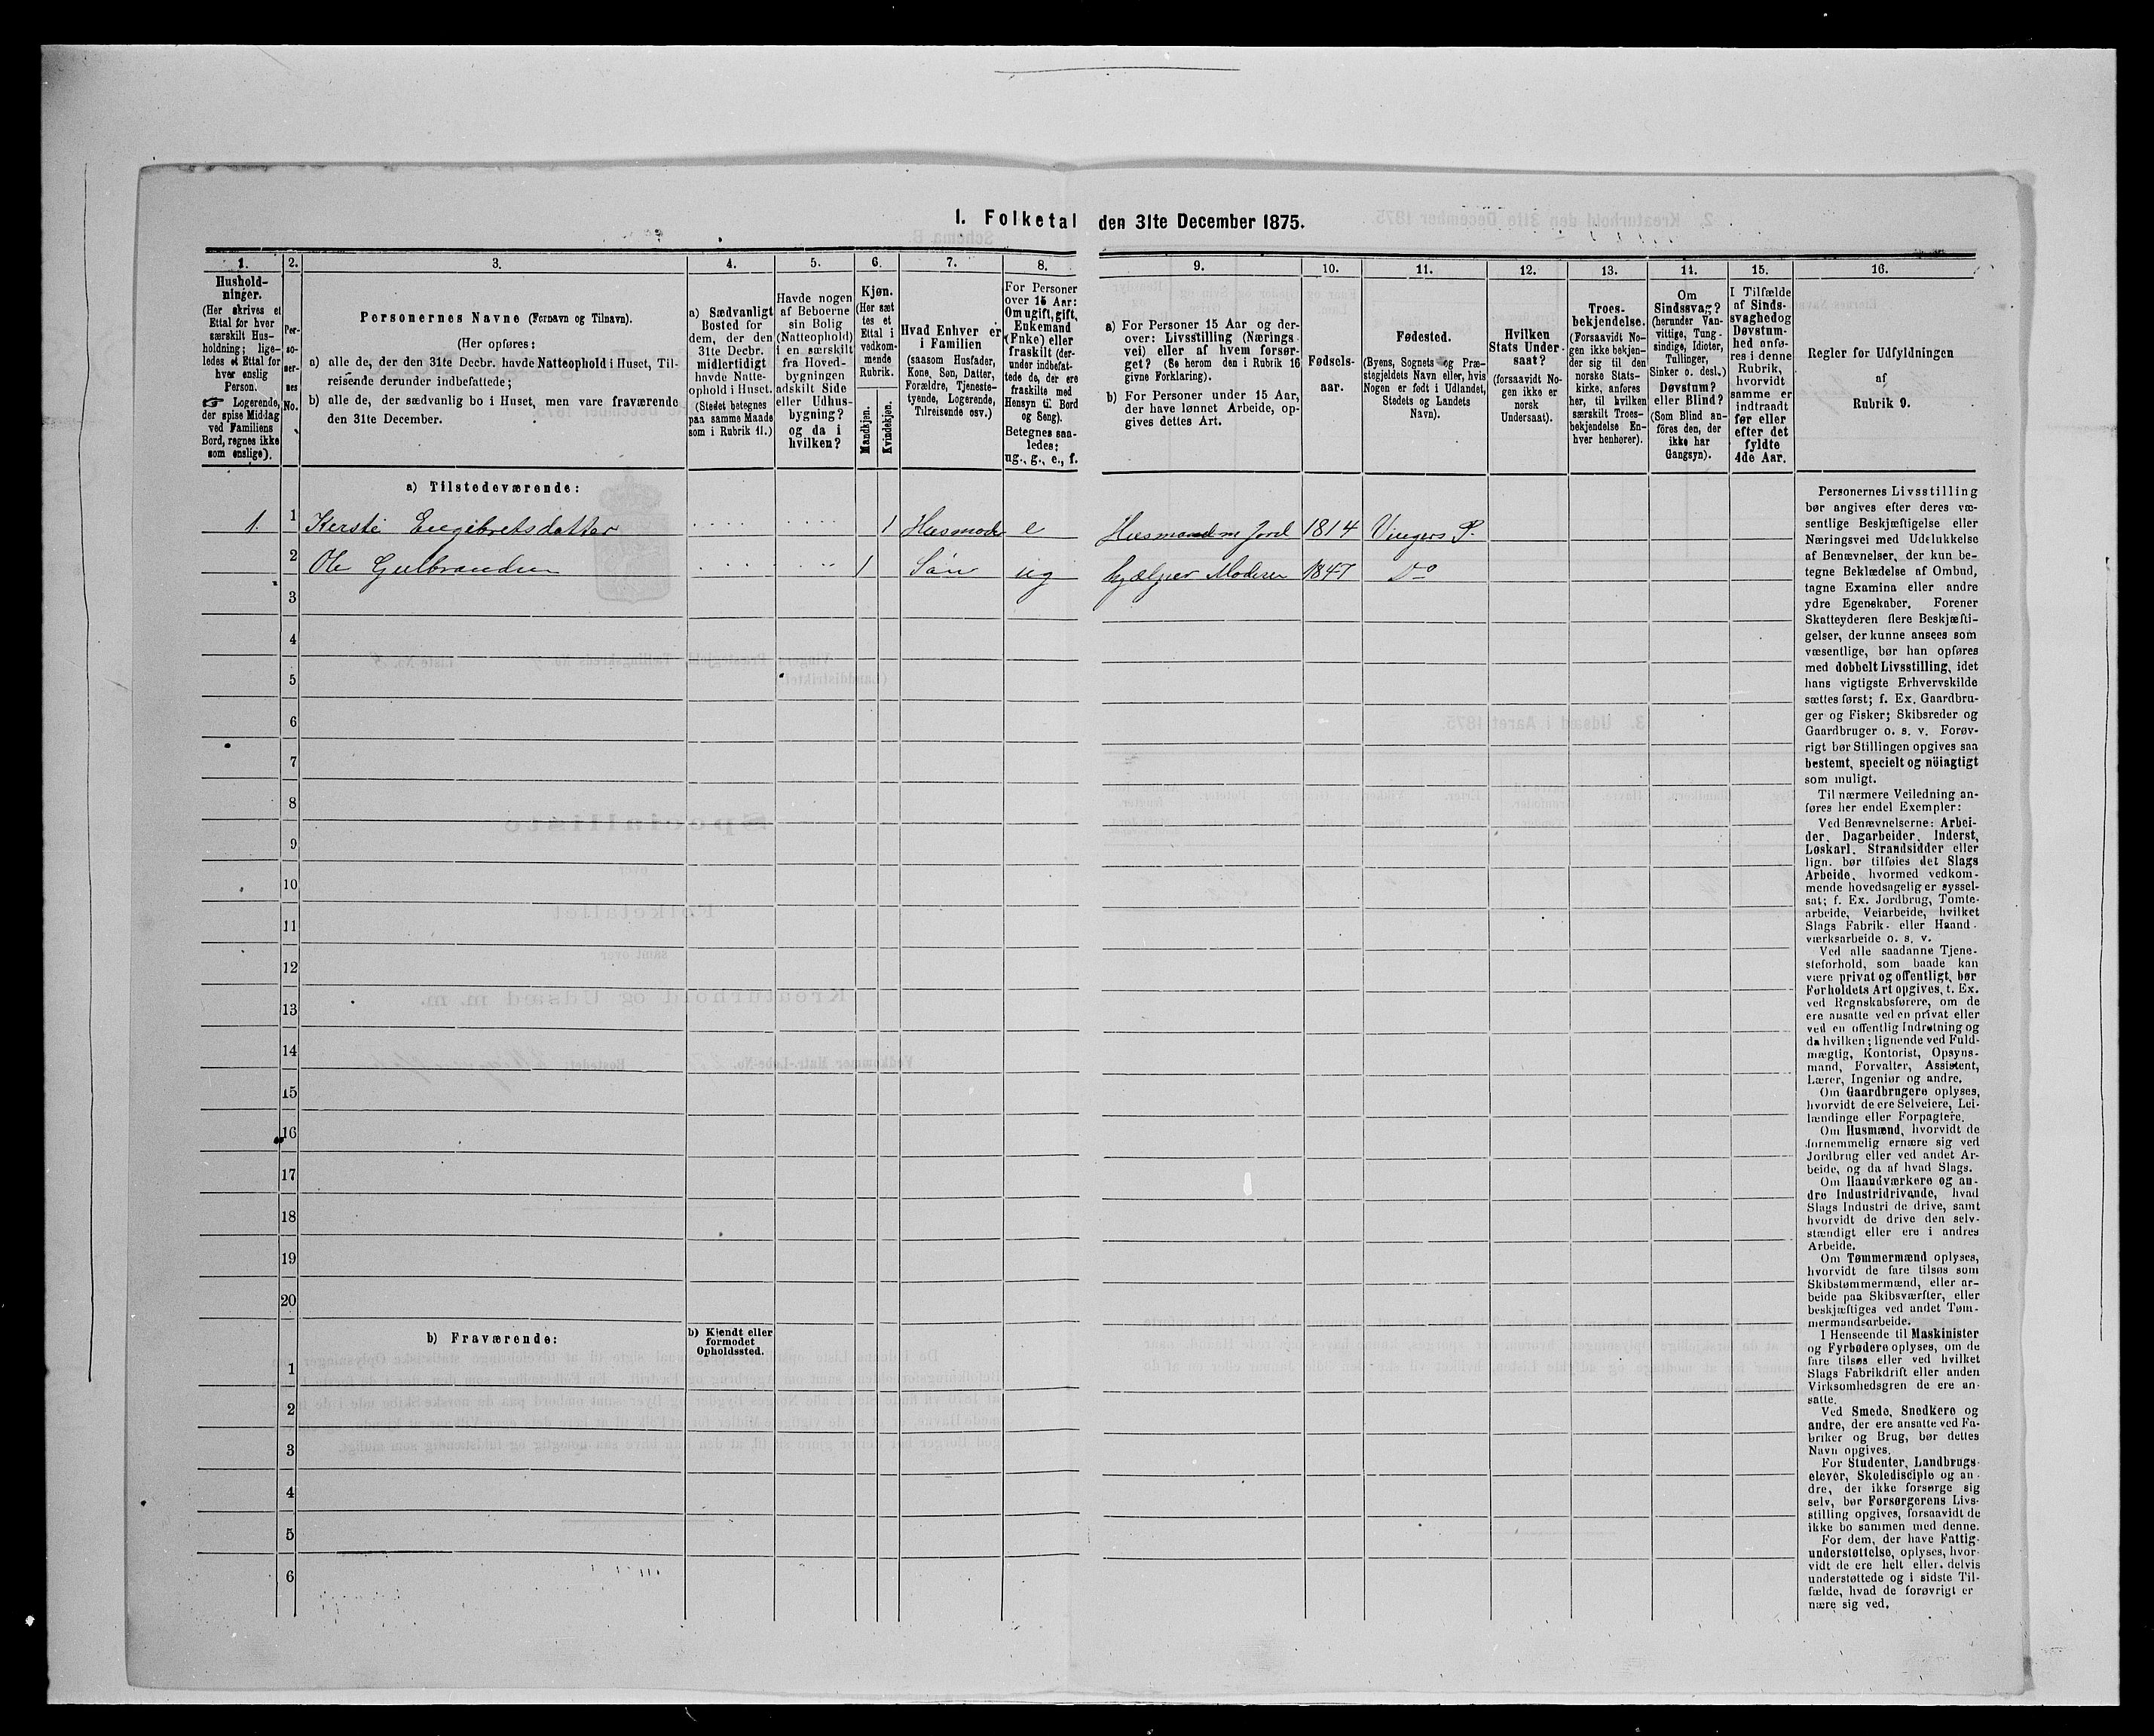 1. Folketal den 31te December 1875.
1.
Hushold-
ninger.
(Her skrives et
Ettal for hver
særskilt Hus-
holdning; lige-
ledes et Ettal for
hver enslig
Person.
☞ Logerende,
der spise Middag
ved Familiens
Bord, regnes ikke
som enslige).
2.
Per-
so-
ner-
nes
No.
3.
Personernes Navne (Fornavn og Tilnavn).
(Her opføres:
a) alle de, der den 31te Decbr. havde Natteophold i Huset, Til-
reisende derunder indbefattede;
b) alle de, der sædvanlig bo i Huset, men vare fraværende
den 31te December.
4.
a) Sædvanligt
Bosted for
dem, der den
31te Decbr.
midlertidigt
havde Natte-
ophold i Huset.
(Stedet betegnes
paa samme Maade
som i Rubrik 11.)
5.
Havde nogen
af Beboerne
sin Bolig
(Natteophold)
i en særskilt
fra Hoved-
bygningen
adskilt Side
eller Udhus-
bygning?
og da i
hvilken?
6.
Kjøn.
(Her sæt
tes et
Ettal i
vedkom-
mende
Rubrik.
Mandkjøn.
Kvindekjøn.
7.
Hvad Enhver er
i Familien
(saasom Husfader,
Kone, Søn, Datter,
Forældre, Tjeneste-
tyende, Logerende,
Tilreisende osv.)
8.
For Personer
over 15 Aar:
Om ugift, gift,
Enkemand
(Enke) eller
fraskilt (der-
under indbefat-
tede de, der ere
fraskilte med
Hensyn til Bord
og Seng).
Betegnes saa-
ledes:
ug., g., e., f.
9.
a) For Personer 15 Aar og der-
over: Livsstilling (Nærings-
vei) eller af hvem forsør-
get? (Se herom den i Rubrik 16
givne Forklaring).
b) For Personer under 15 Aar,
der have lønnet Arbeide, op-
gives dettes Art.
10.
Fødsels-
aar.
11.
Fødested.
(Byens, Sognets og Præ-
stegjeldets Navn eller, hvis
Nogen er født i Udlandet,
Stedets og Landets
Navn).
12.
Hvilken
Stats Under-
saat?
(forsaavidt No-
gen ikke er
norsk
Undersaat).
13.
Troes-
bekjendelse.
(Forsaavidt No-
gen ikke bekjen-
der sig til den
norske Stats-
kirke, anføres
her, til hvilken
særskilt Troes-
bekjendelse En-
hver henhører).
14.
Om
Sindssvag?
(herunder Van-
vittige, Tung-
sindige, Idioter,
Tullinger,
Sinker o. desl.)
Døvstum?
eller Blind?
(Som Blind an-
föres den, der
ikke har
Gangsyn).
15.
I Tilfælde
af Sinds-
svaghed og
Døvstum-
hed anfø-
res i denne
Rubrik,
hvorvidt
samme er
indtraadt
før eller
efter det
fyldte
4de Aar.
16.
Regler for Udfyldningen
af
Rubrik 9.
a) Tilstedeværende:
1. 1 Kersti Engebretsdatter 1 Husmoder e Husmand m jord 1814 Vingers P.
2 Ole Gulbrandsen 1 Søn ug hjælper Moderen 1847 Do
3
4
5
6
7
8
9
10
11
12
13
14
15
16
17
18
19
20
b) Fraværende:
b) Kjendt eller
formodet
Opholdssted.
1
2
3
4
5
6
Personernes Livsstilling
bør angives efter deres væ-
sentlige Beskjæftigelse eller
Næringsvei med Udelukkelse
af Benævnelser, der kun be-
tegne Beklædelse af Ombud,
tagne Examina eller andre
ydre Egenskaber. Forener
Skatteyderen flere Beskjæfti-
gelser, der kunne ansees som
væsentlige, bør han opføres
med dobbelt Livsstilling, idet
hans vigtigste Erhvervskilde
sættes først; f. Ex. Gaardbru-
ger og Fisker; Skibsreder og
Gaardbruger o. s. v. Forøv-
rigt bør Stillingen opgives saa
bestemt, specielt og nöiagtigt
som muligt.
Til nærmere Veiledning an-
føres her endel Exempler:
Ved Benævnelserne: Arbei-
der, Dagarbeider, Inderst,
Løskarl, Strandsidder eller
lign. bør tilføies det Slags
Arbeide, hvormed vedkom-
mende hovedsagelig er syssel-
sat; f. Ex. Jordbrug, Tomte-
arbeide, Veiarbeide, hvilket
Slags Fabrik- eller Haand-
værksarbeide o. s. v.
Ved alle saadanne Tjene-
steforhold, som baade kan
være privat og offentligt, bør
Forholdets Art opgives, t. Ex.
ved Regnskabsførere, om de
ere ansatte ved en privat eller
ved en offentlig Indretning og
da hvilken; lignende ved Fuld-
mægtig, Kontorist, Opsyns-
mand, Forvalter, Assistent,
Lærer, Ingeniør og andre.
Om Gaardbrugere oplyses,
hvorvidt de ere Selveiere, Lei-
lændinge eller Forpagtere.
Om Husmænd, hvorvidt de
fornemmelig ernære sig ved
Jordbrug eller ved andet Ar-
beide, og da af hvad Slags.
Om Haandværkere og an-
dre Industridrivende, hvad
Slags Industri de drive, samt
hvorvidt de drive den selv-
stændigt eller ere i andres
Arbeide.
Om Tømmermænd oplyses,
hvorvidt de fare tilsøs som
Skibstømmermænd, eller ar-
beide paa Skibsværfter, eller
beskjæftiges ved andet Tøm-
mermandsarbeide.
I Henseende til Maskinister
og Fyrbødere oplyses, om de
fare tilsøs eller ved hvilket
Slags Fabrikdrift eller anden
Virksomhedsgren de ere an-
satte.
Ved Smede, Snedkere og
andre, der ere ansatte ved Fa-
briker og Brug, bør dettes
Navn opgives.
For Studenter, Landbrugs-
elever, Skoledisciple og an-
dre, der ikke forsørge sig
selv, bør Forsørgerens Livs-
stilling opgives, forsaavidt de
ikke bo sammen med denne.
For dem, der have Fattig-
understøttelse, oplyses, hvor-
vidt de ere helt eller delvis
understøttede og i sidste Til-
fælde, hvad de forøvrigt er
nære sig ved.